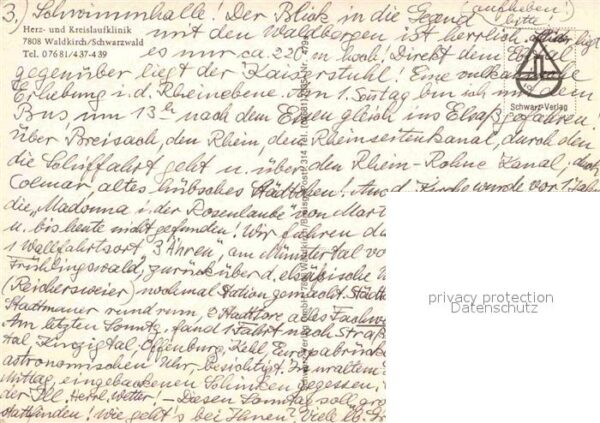 3.) Schwimmhalle! Der Blick in die Gegend (aufheben!
Herz- und Kreislaufklinik
7808 Waldkirch/Schwarzwald
Tel. 07681/437-439
mit den Waldbergen ist herrlich. bitte!
es nur ca. 220 m hoch! Direkt dem
gegenüber liegt der Kaiserstuhl! Eine
Erhebung i. d. Rheinebene. Am 1. Sonntag bin ich mit dem
Schwarz-Verlag
Bus um 13 h nach dem Essen gleich ins Elsaß gefahren!
über Breisach, den Rhein, den Rheinseitenkanal, durch den
die Schiffahrt geht u. über den Rhein-Rohne Kanal, nach
Colmar, altes hübsches Städtchen! Aus d. Kirche wurde vor 1 Jahr
die "Madonna i. der Rosenlaube" von Mart
u. bis heute nicht gefunden! Wir fuhren da
1 Wallfahrtsort "3 Ähren", am Münstertal vo
Frühlingswald, zurück über d. elsäßische W
(Reichersweier) nochmal Station gemacht. Städt
Stadtmauer rund rum, 2 Stadttore alles Fachw
Am letzten Sonntg. fand 1 Fahrt nach Straß
tal, Kinzigtal, Offenburg, Kehl, Europabrücke
astronomischen Uhr, besichtigt. In uraltem
Mittag, eingebackenen Schinken gegessen,
der Ill. Herrl. Wetter! – Diesen Sonntag soll gro
stattfinden! Wie geht's bei Ihnen? Viele lb. Gr
privacy protection
Datenschutz